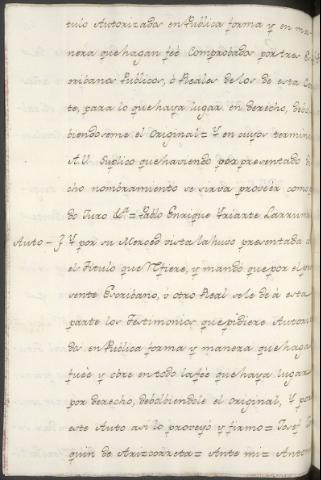 tulo Autorizados en Publica forma y en ma
nera que hagan feè Comprobados por tres
cribanos Publicos, ò Reales de los de esta Co
te, para lo que haya lugar en derecho, debol
biendoseme el Original= Y en cuyos terminos
A V. Suplico que haviendo por presentado d
cho nombramiento se sirva proveer como p
do Juro &ª.= Pablo Enrique Yriarte Larrum
Auto= Y por su Merced vista la huvo presentada
el Titulo que refiere, y mandò que por el pre
sente Escribano, ò otro Real se le dè à esta
parte los Testimonios que pidiere Autoriza
dos en Publica forma y manera que haga
feèe y obre en todo la feè que haya lugar
por derecho, debolbiendole el Original, Y por
este Auto asi lo proveyò y firmo= Josef
quin de Arizcorreta= Ante mi= Anto